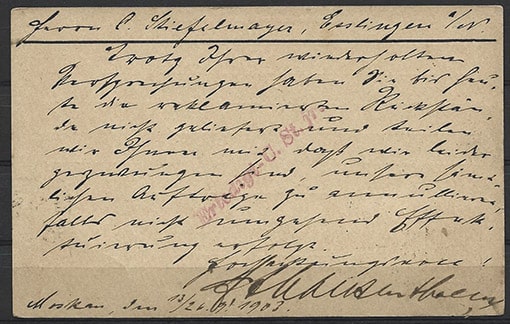 Herrn C. Stiefelmayer, Esslingen a/N.
Trotz Ihrer wiederholten
Versprechungen haben Sie bis heu-
te die reklamierten Rückstän-
de nicht geliefert und teilen
wir Ihnen mit, dass wir leider
gezwungen sind, unsere sämt-
lichen Aufträge zu annullieren,
falls nicht umgehend Effek-
tuierung erfolgt.
Hochachtungsvoll!
Moskau, den 1903.